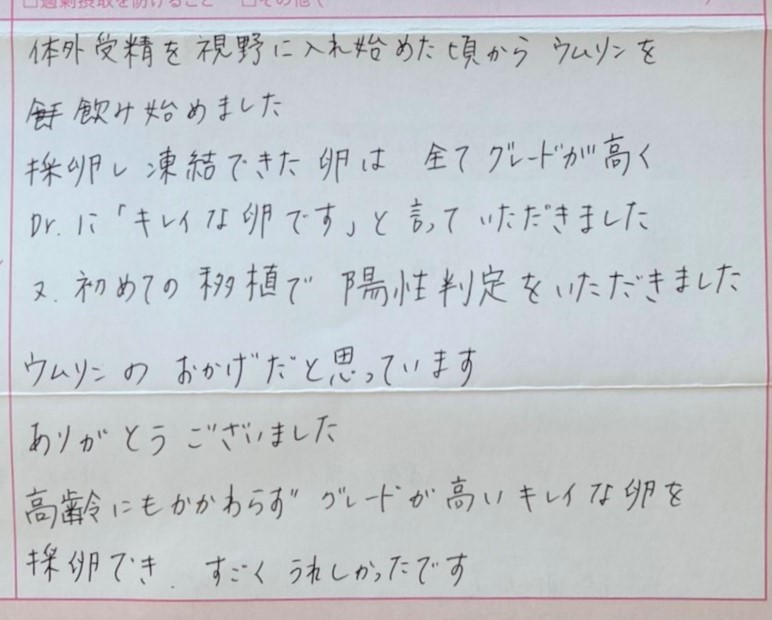 □過剰摂取を防げること □その他(
体外受精を視野に入れ始めた頃からウムリンを
飲み始めました
採卵し凍結できた卵は 全てグレードが高く
Dr.に「キレイな卵です」と言っていただきました
又、初めての移植で 陽性判定をいただきました
ウムリンの おかげだと思っています
ありがとう ございました
高齢にもかかわらず グレードが高いキレイな卵を
採卵でき、すごく うれしかったです